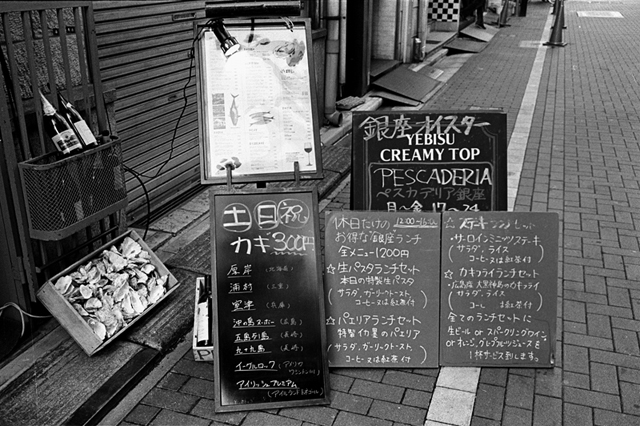 銀座オイスター
YEBISU
CREAMY TOP
PESCADERIA
ペスカデリア銀座
月〜金 17〜24
土日祝
カキ300円
厚岸(北海道)
浦村(三重)
室津(兵庫)
沖の島スポー(広島)
五島列島(長崎)
九十九島(長崎)
イーグルロック(アメリカ
ワシントン州)
アイリッシュプレミアム
(アイルランド
休日だけの 12:00〜16:00
お得な銀座ランチ
全メニュー1200円
☆生パスタランチセット
本日の特製生パスタ
(サラダ、ガーリックトースト
コーヒー又は紅茶付)
☆パエリアランチセット
特製イカ墨のパエリア
(サラダ、ガーリックトースト、
コーヒー又は紅茶付)
☆ステーキランチセット
・サーロインミニッツステーキ
(サラダ、ライス
コーヒー又は紅茶付)
☆カキフライランチセット
・広島産大黒神島のカキフライ
(サラダ、ライス
コーヒー 紅茶付)
全てのランチセットに
生ビール or スパークリングワイン
or オレンジ、グレープフルーツジュースを
1杯サービス致します。